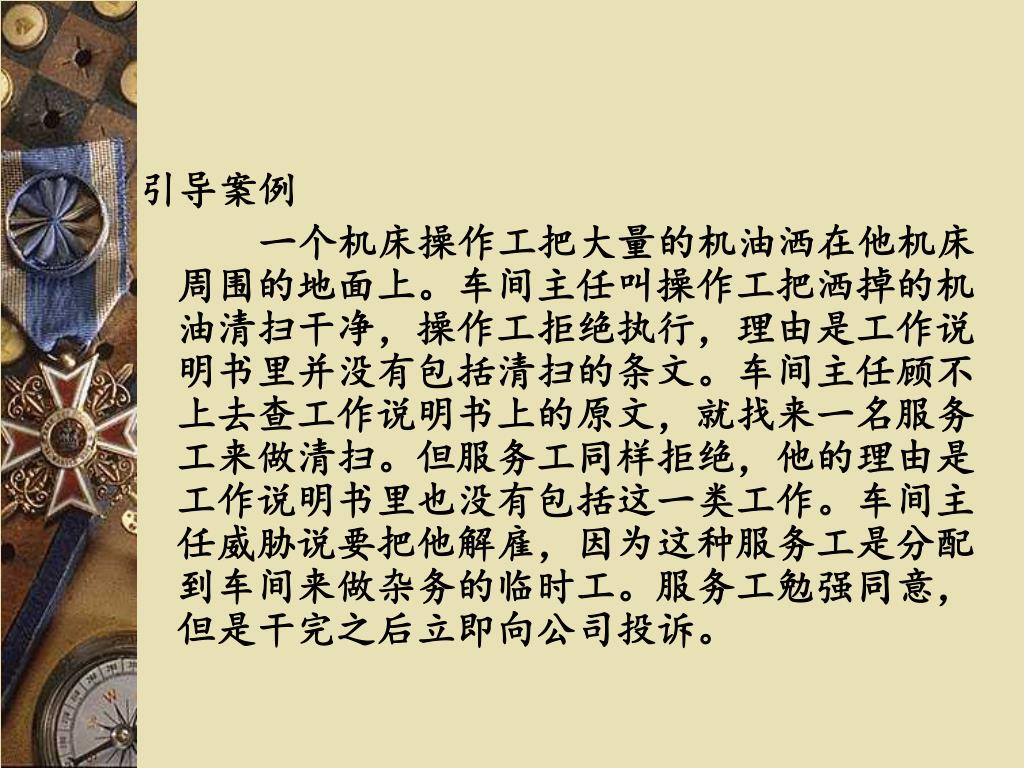 引导案例
一个机床操作工把大量的机油洒在他机床
周围的地面上。车间主任叫操作工把洒掉的机
油清扫干净，操作工拒绝执行，理由是工作说
明书里并没有包括清扫的条文。车间主任顾不
上去查工作说明书上的原文，就找来一名服务
工来做清扫。但服务工同样拒绝，他的理由是
工作说明书里也没有包括这一类工作。车间主
任威胁说要把他解雇，因为这种服务工是分配
到车间来做杂务的临时工。服务工勉强同意，
但是干完之后立即向公司投诉。